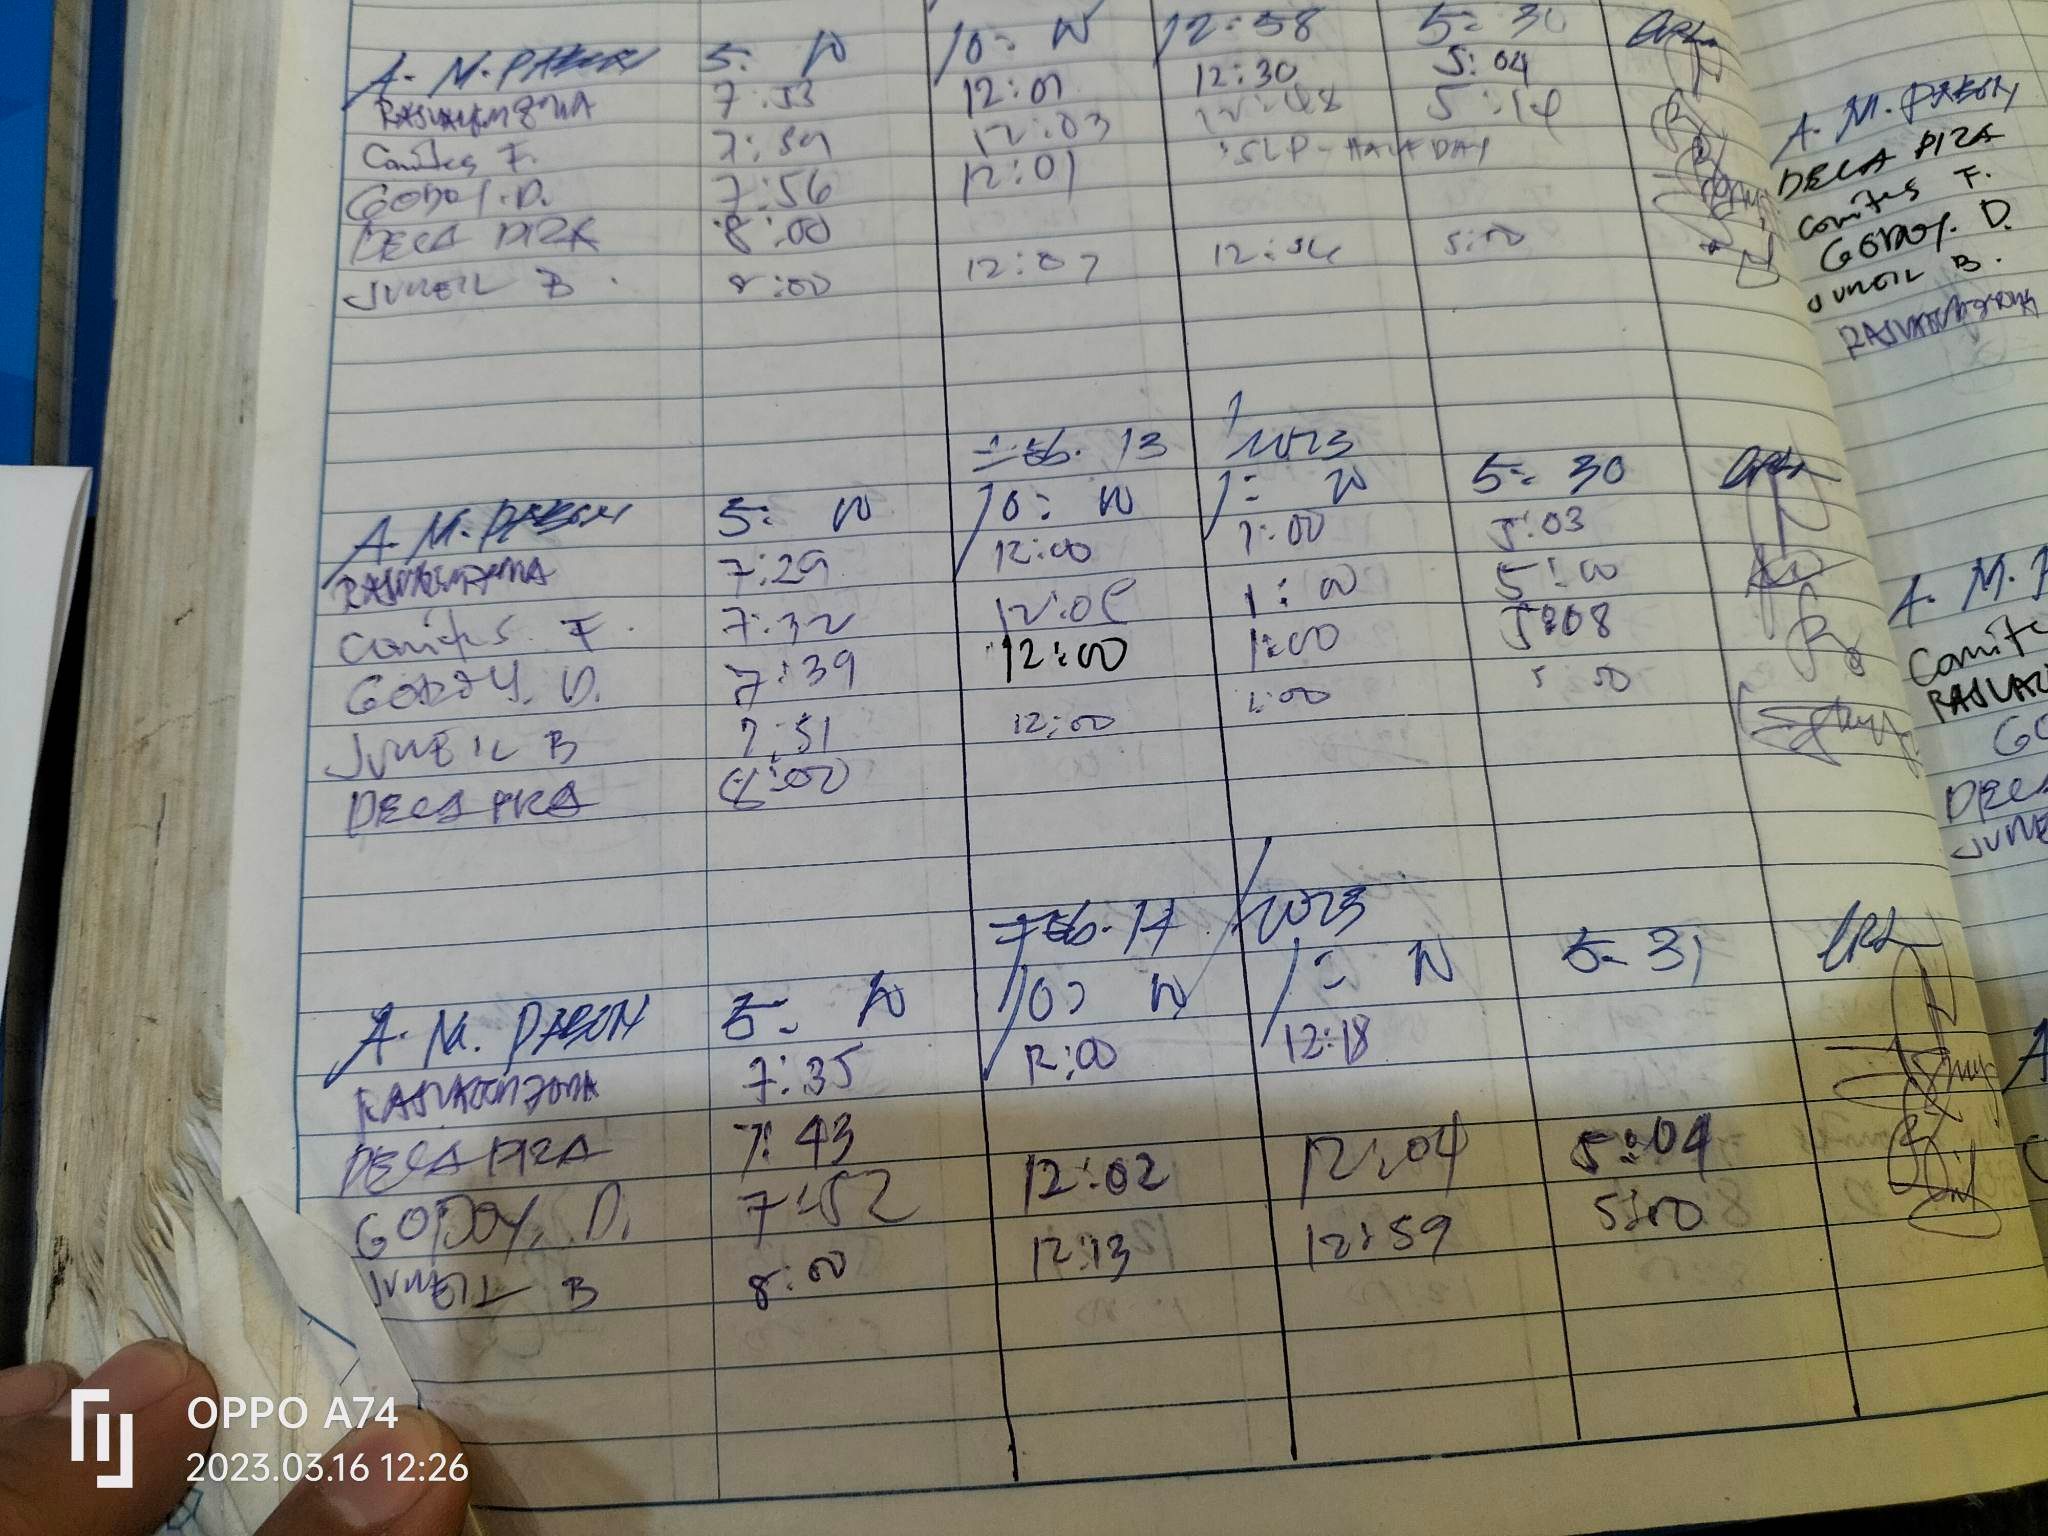 A. M. PABON 5: 00 10: 00 12:58 5: 30
7:53 12:01 12:30 5:04
Comites F. 7:59 12:03 12:48 5:14
GODOY. D. 7:56 12:01 SLP - HALFDAY
DECA PIZA 8:00
JUNEIL B. 8:00 12:07 12:56 5:00
Feb. 13 / 2023
A. M. PABON 5: 00 10: 00 1: 00 5: 30
7:29 12:00 1:00 5:03
Comites F. 7:32 12:05 1:00 5:00
GODOY. D. 7:39 12:00 1:00 5:08
JUNEIL B 7:51 12:00 1:00 5:00
DECA PIZA 8:00
Feb. 14 / 2023
A. M. PABON 5: 00 10: 00 1: 00 5: 31
7:35 12:00 12:18
DECA PIZA 7:43
GODOY, D. 7:52 12:02 12:04 5:04
JUNEIL B 8:00 12:13 12:59 5:00
A. M. PABON
DECA PIZA
Comites F.
GODOY. D.
JUNEIL B.
A. M. P
Comite
GO
DECA
JUNE
OPPO A74
2023.03.16 12:26